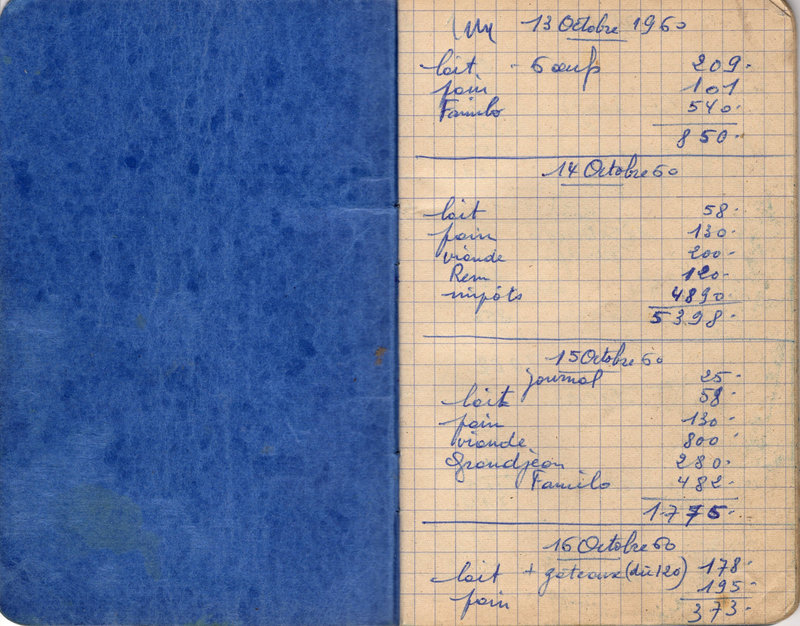 13 Octobre 1960
lait - 6 œufs 209.
pain 101
Familo 540.
850.
14 Octobre 60
lait 58.
pain 130.
viande 200.
Rem 120.
impôts 4890.
5398.
15 Octobre 60
journal 25.
lait 58.
pain 130.
viande 800
Grandjean 280.
Familo 482.
1775.
16 Octobre 60
lait + gâteaux (dû 120) 178.
pain 195.
373.